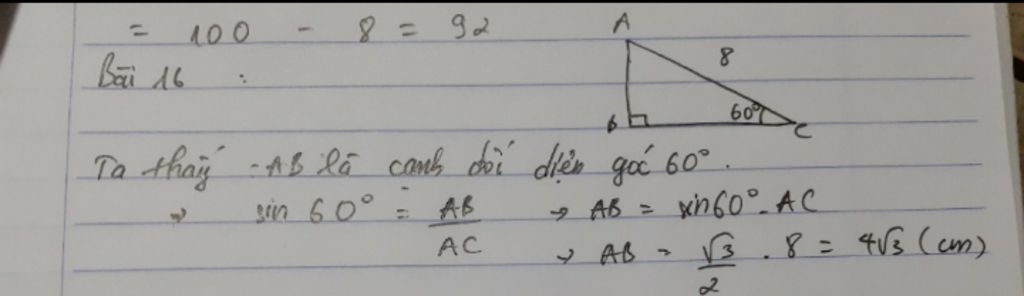 = 100 - 8 = 92
Bài 16 :
A
8
B
60°
C
Ta thấy - AB là cạnh đối diện góc 60°.
→ sin 60° = AB/AC → AB = sin60° . AC
→ AB = √3/2 . 8 = 4√3 (cm)